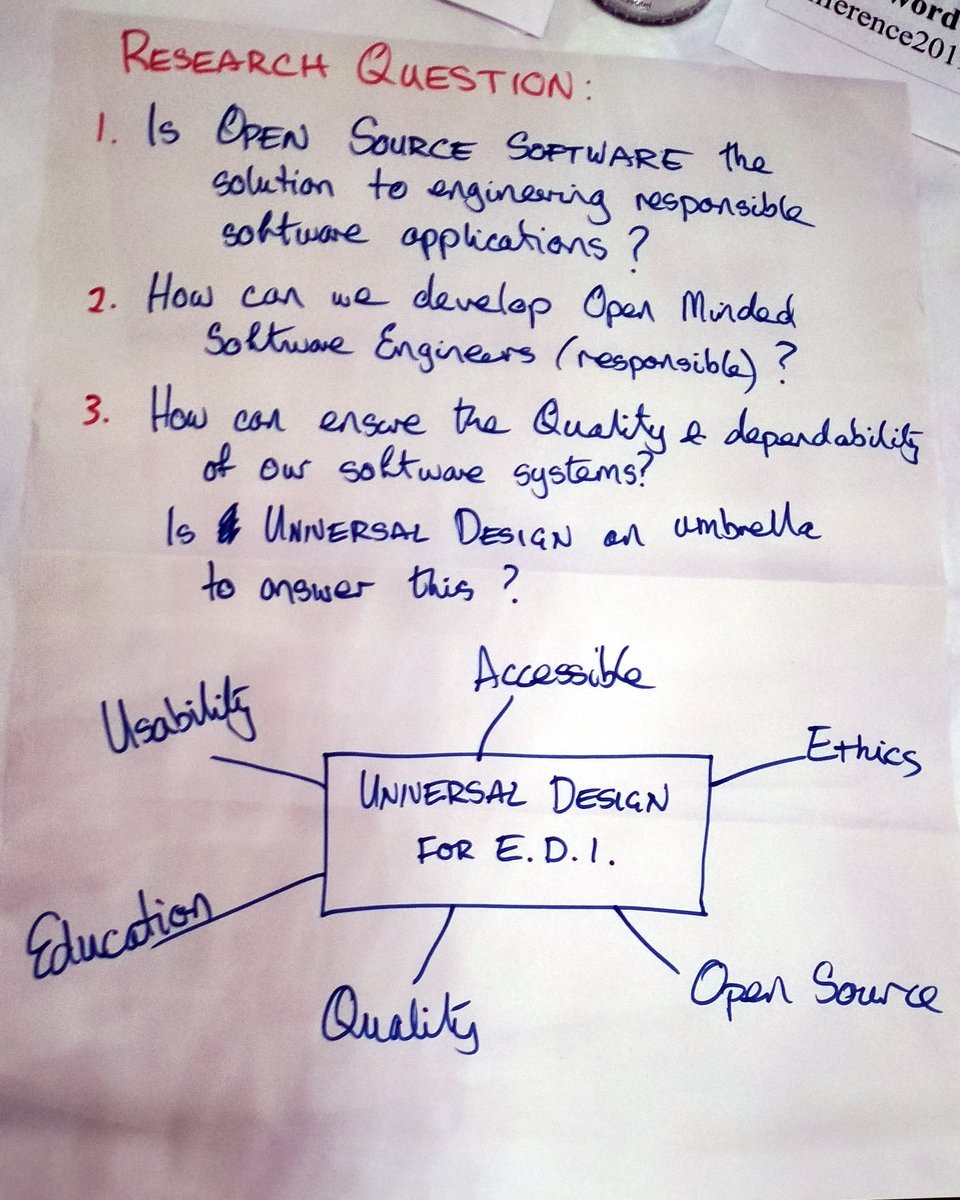 word
nference201
RESEARCH QUESTION:
1. Is OPEN SOURCE SOFTWARE the
solution to engineering responsible
software applications?
2. How can we develop Open Minded
Software Engineers (responsible)?
3. How can ensure the Quality & dependability
of our software systems?
Is UNIVERSAL DESIGN an umbrella
to answer this?
Accessible
Usability
Ethics
UNIVERSAL DESIGN
FOR E.D.I.
Education
Quality
Open Source